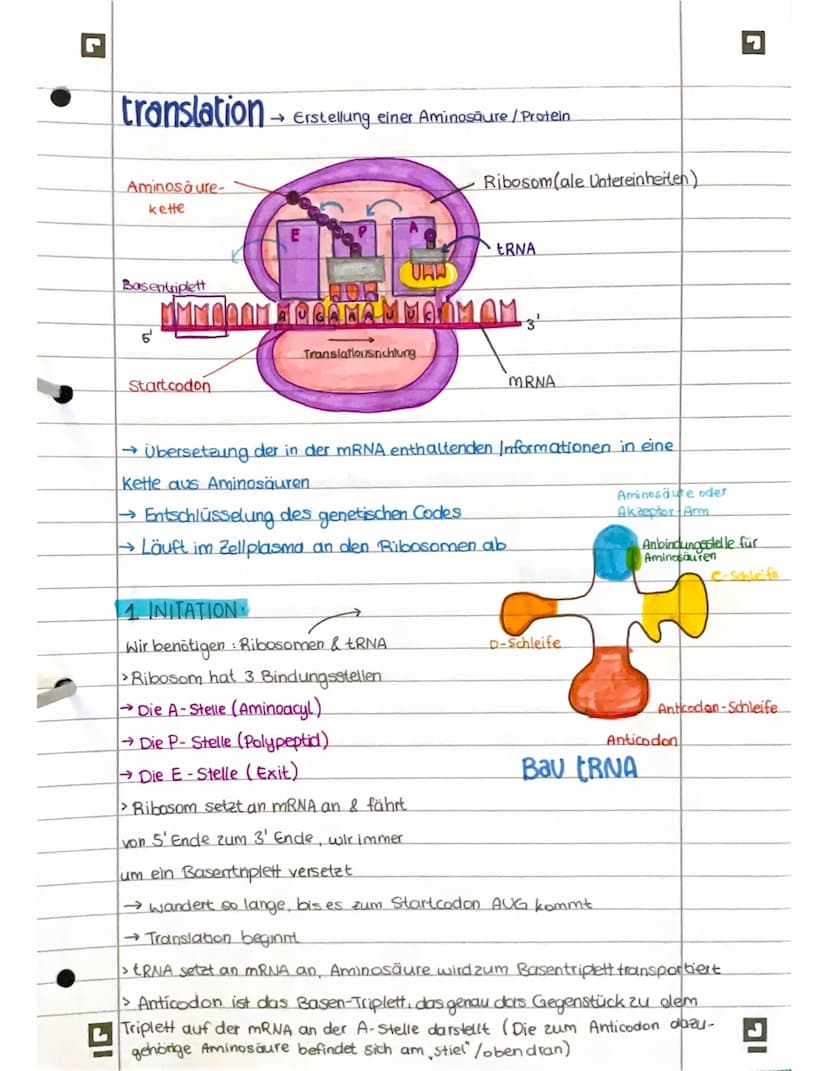 translation → Erstellung einer Aminosäure / Protein
Aminosäure-
kette
Ribosom(ale Untereinheiten)
E
P
A
tRNA
Basentriplett
A U G A A A U U C
5'
3'
Translationsrichtung
Startcodon
mRNA
→ Übersetzung der in der mRNA enthaltenden Informationen in eine
Kette aus Aminosäuren
→ Entschlüsselung des genetischen Codes
→ Läuft im Zellplasma an den Ribosomen ab
Aminosäure oder
Akzeptor-Arm
Anbindungsstelle für
Aminosäuren
C-Schleife
D-Schleife
Anticodon-Schleife
Anticodon
Bau tRNA
1. INITATION:
Wir benötigen : Ribosomen & tRNA
> Ribosom hat 3 Bindungsstellen
→ Die A-Stelle (Aminoacyl)
→ Die P- Stelle (Polypeptid)
→ Die E - Stelle (Exit)
> Ribosom setzt an mRNA an & fährt
von 5' Ende zum 3' Ende, wir immer
um ein Basentriplett versetzt
→ wandert so lange, bis es zum Startcodon AUG kommt
→ Translation beginnt
> tRNA setzt an mRNA an, Aminosäure wird zum Basentriplett transportiert
> Anticodon ist das Basen-Triplett, das genau das Gegenstück zu dem
Triplett auf der mRNA an der A-Stelle darstellt (Die zum Anticodon dazu-
gehörige Aminosäure befindet sich am „stiel" /oben dran)